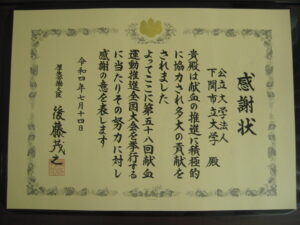 感謝状
公立大学法人
下関市立大学 殿
貴殿は献血の推進に積極的
に協力され多大の貢献を
されました
よってここに第五十八回献血
運動推進全国大会を挙行する
に当たりその努力に対し
感謝の意を表します
令和四年七月十四日
厚生労働大臣 後藤茂之